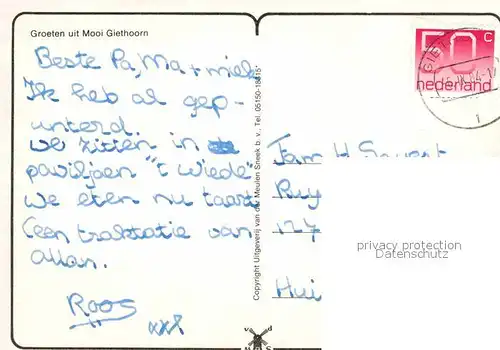 Groeten uit Mooi Giethoorn
Beste Pa, Ma + miek
Ik heb al gep-
unterd.
we zitten in
paviljoen "t Wiede"
we eten nu taart
(een traktatie van
allan.
Roos
xxx
Copyright Uitgeverij van der Meulen Sneek b. v., Tel. 05150-
v d
M S
50 c
nederland
Fam H
Ruy
127
Hui
privacy protection
Datenschutz